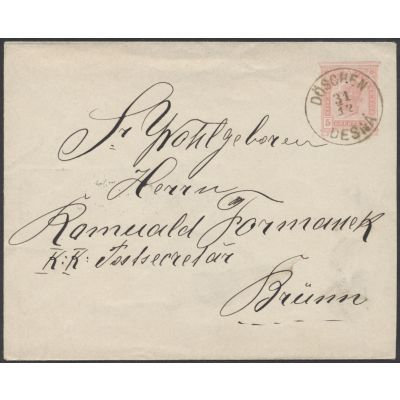 DÖSCHEN
31
12
DESNÁ
5
Sr Wohlgeboren
Herrn
Romuald Formanek
K: K: Postsecretär
Brünn